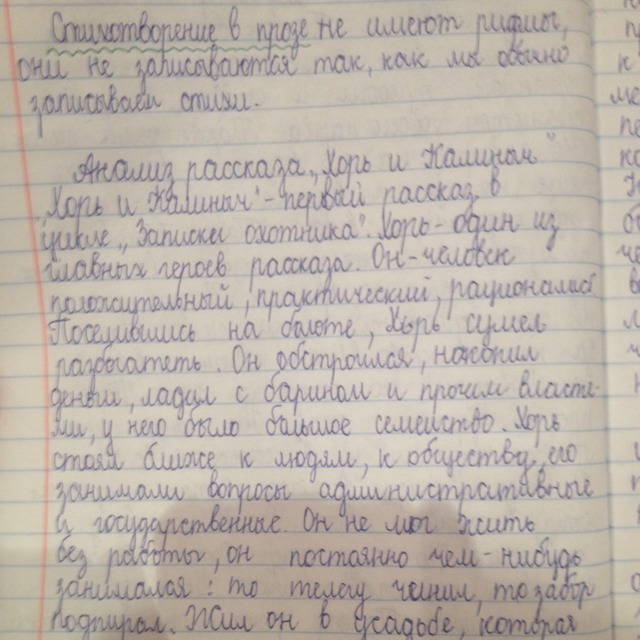 Стихотворение в прозе не имеют рифмы,
они не записываются так, как мы обычно
записываем стихи.
Анализ рассказа „Хорь и Калиныч"
„Хорь и Калиныч" - первый рассказ в
цикле „Записки охотника". Хорь - один из
главных героев рассказа. Он - человек
положительный, практический, рационалист
Поселившись на болоте, Хорь сумел
разбогатеть. Он обстроился, накопил
деньги, ладил с барином и прочим властя-
ми, у него было большое семейство. Хорь
стоял ближе к людям, к обществу, его
занимали вопросы административные
и государственные. Он не мог жить
без работы, он постоянно чем-нибудь
занимался: то телегу чинил, то забор
подпирал. Жил он в усадьбе, которая